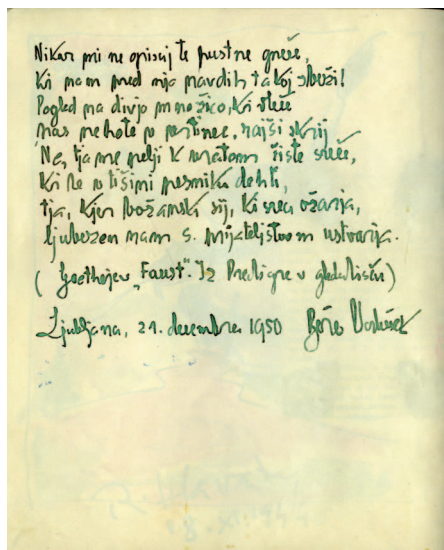 Nikar mi ne opisuj te pustne gneče,
ki nam pred njo navdih takoj zbeži!
Pogled na divjo množico, ki vleče
nas nehote v vrtinec, rajši skrij
Ne, tja me pelji k vratom čiste sreče,
ki le v tišini pesniku dehti,
tja, kjer božanski sij, ki srca ožarja,
ljubezen nam s prijateljstvom ustvarja.
(Goethejev „Faust". Iz Predigre v gledališču)
Ljubljana, 21. decembra 1950 Božo Vodušek